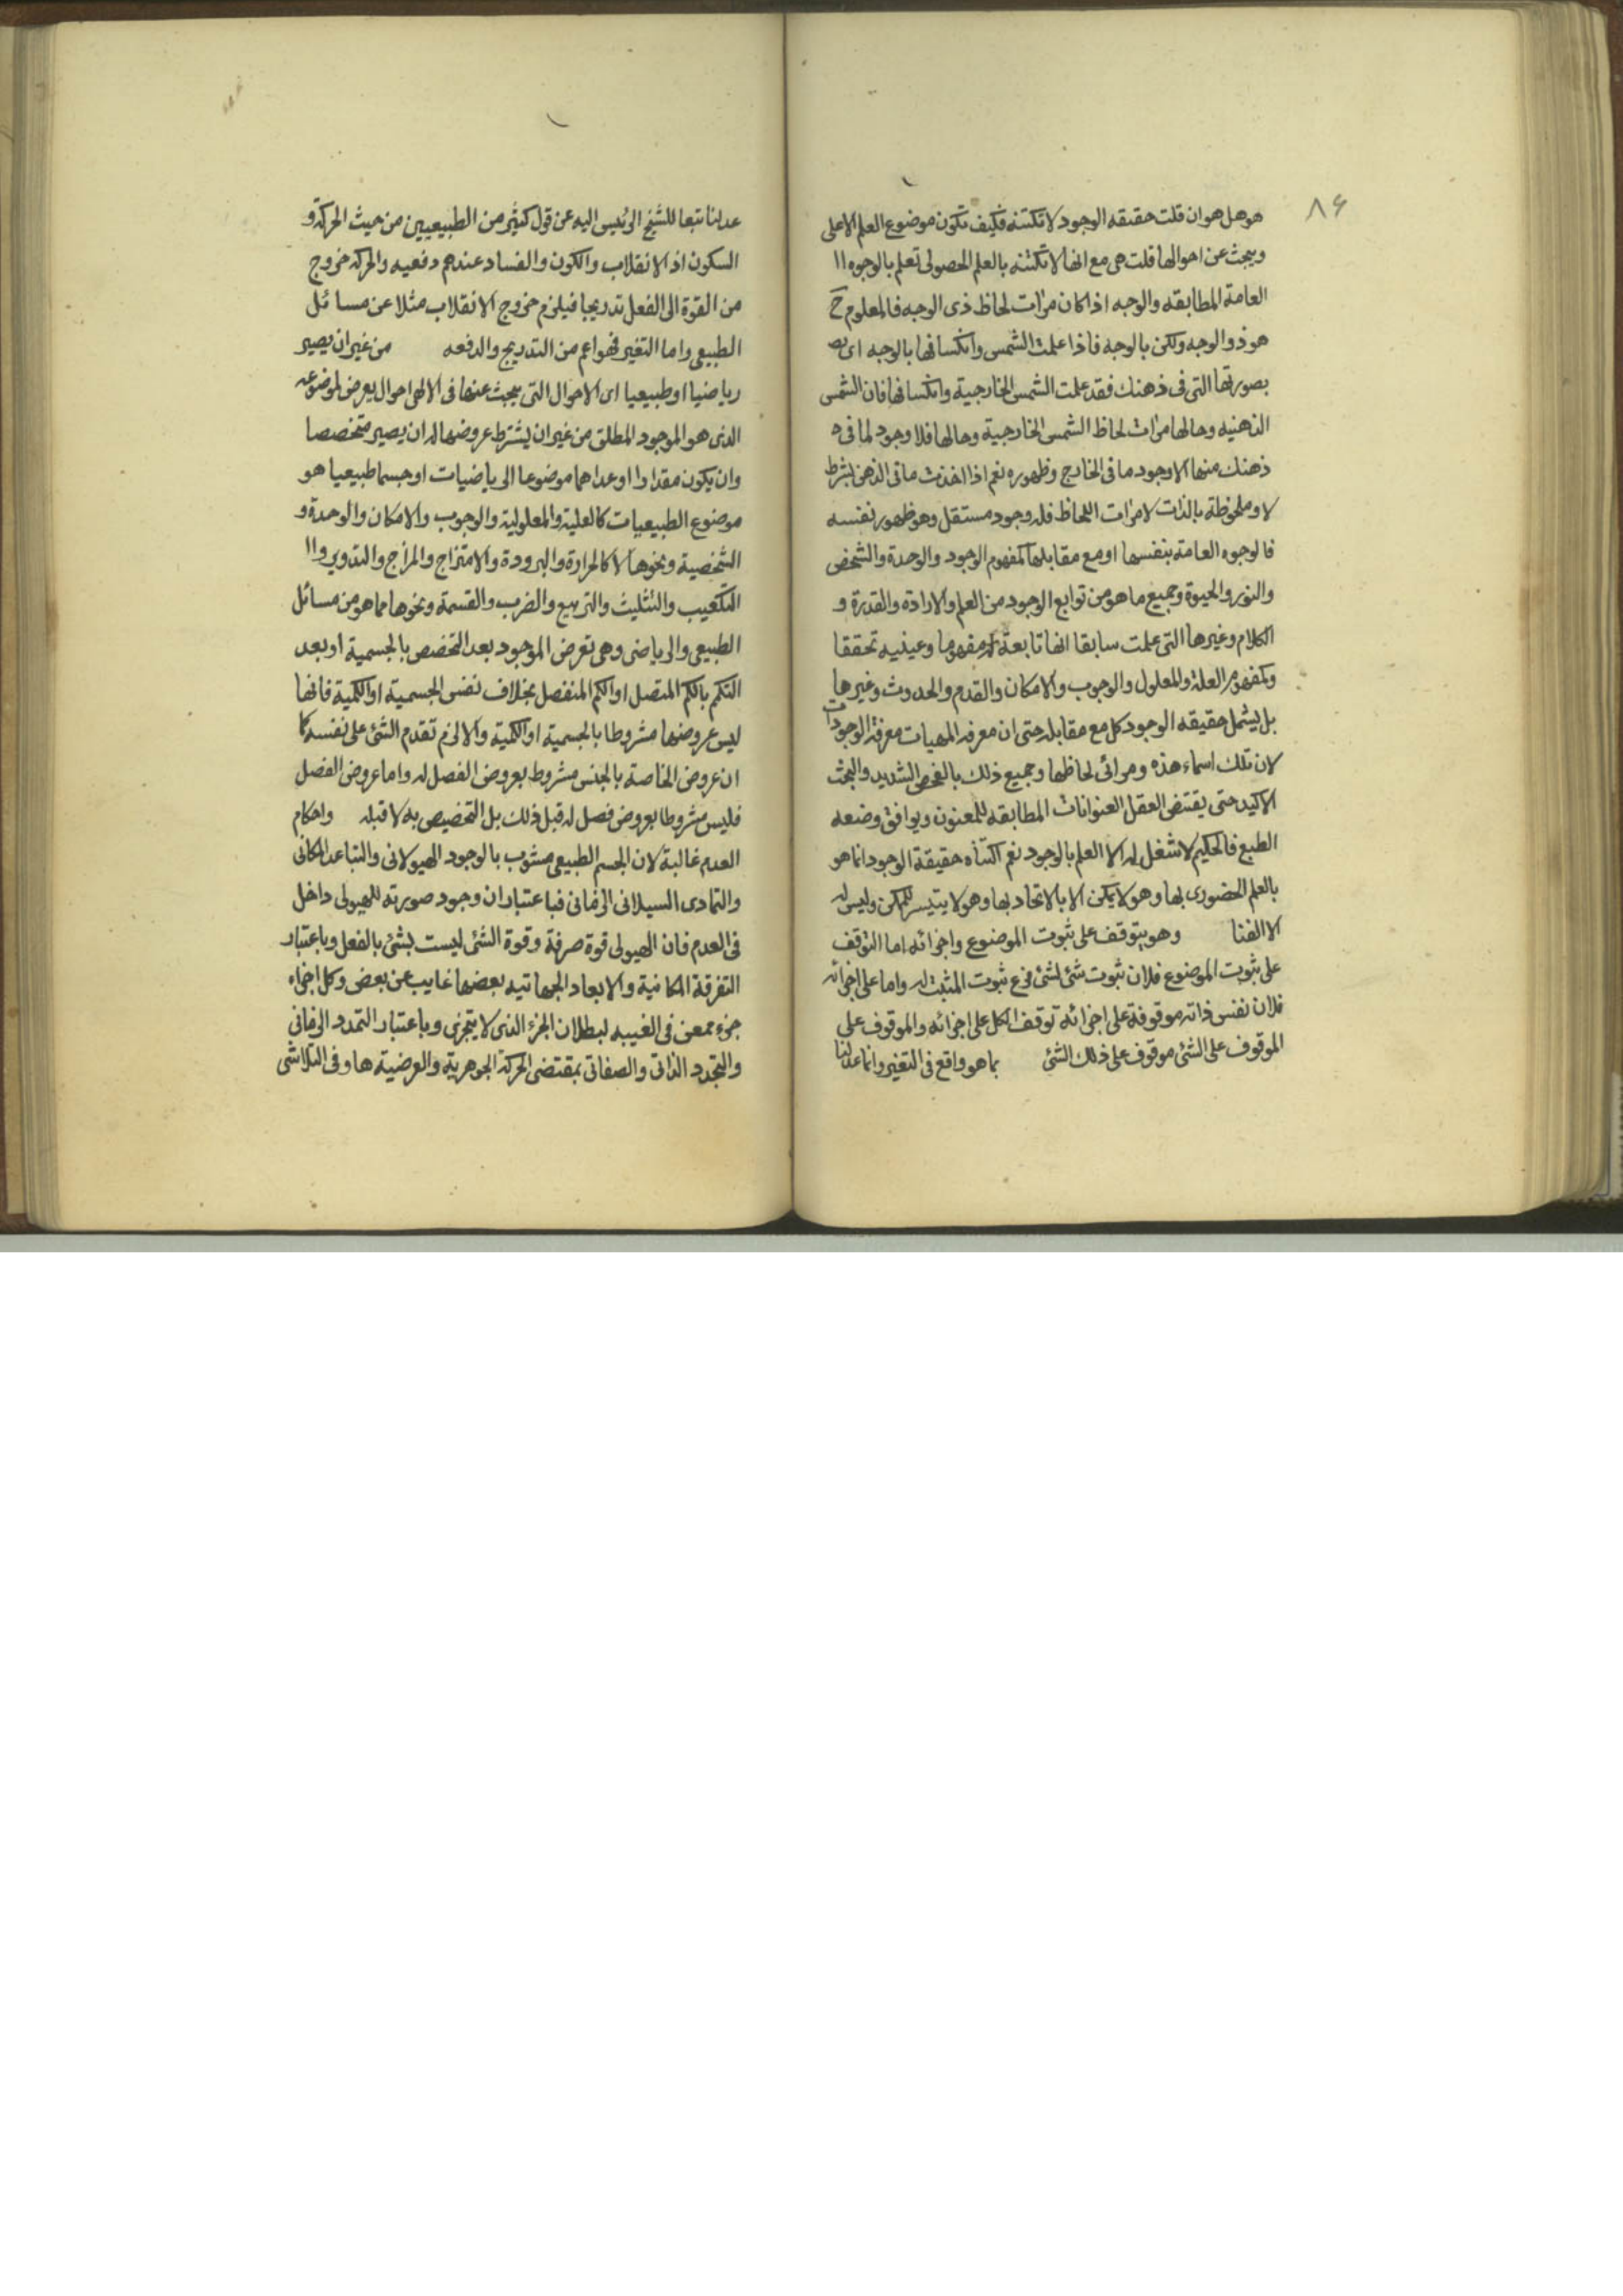 ۸۶
هو هل هو ان قلت حقيقه الوجود لا تكتنه فكيف تكون موضوع العلم الاعلى
ويبحث عن احوالها قلت هى مع انها لا تكتنه بالعلم الحصولى تعلم بالوجوه ال
العامة المطابقه والوجه اذا كان مرات لحاظ ذى الوجه فالمعلوم ح
هو ذو الوجه ولكن بالوجه فاذا علمت الشمس وانكسافها بالوجه اى بص
بصورتها التى فى ذهنك فقد علمت الشمس الخارجية وانكسافها فان الشمس
الذهنيه وحالها مرات لحاظ الشمس الخارجية وحالها فلا وجود لما فى ذ
ذهنك منها الا وجود ما فى الخارج وظهوره نعم اذا اخذت ما فى الذهن بشرط
لا وملحوظة بالذات لا مرات اللحاظ فله وجود مستقل وهو ظهور نفسه
فالوجوه العامة بنفسها او مع مقابلها كمفهوم الوجود والوحدة والتشخص
والنور والحيوة وجميع ما هو من توابع الوجود من العلم والارادة والقدرة و
الكلام وغيرها التى علمت سابقا انها تابعة له مفهوما وعينيه تحققا
وكمفهوم العلة والمعلول والوجوب والامكان والقدم والحدوث وغيرها
بل يشمل حقيقه الوجود كل مع مقابله حتى ان معرفه المهيات معرفة الوجودات
لان تلك اسماء هذه ومرائى لحاظها وجميع ذلك بالفحص الشديد والبحث
الاكيد حتى يقتضى العقل العنوانات المطابقه للمعنون ويوافق وضعه
الطبع فالحكيم لا شغل له الا العلم بالوجود نعم اكتناه حقيقة الوجود انما هو
بالعلم الحضورى بها وهو لا يمكن الا بالاتحاد بها وهو لا يتيسر للممكن وليس له
الا الفنا وهو يتوقف على ثبوت الموضوع واجزائه اما التوقف
على ثبوت الموضوع فلان ثبوت شئ لشئ فرع ثبوت المثبت له واما على اجزائه
فلان نفس ذاته موقوفة على اجزائه توقف الكل على اجزائه والموقوف على
الموقوف على الشئ موقوف على ذلك الشئ بما هو واقع فى التغير وانما عدلنا
عدلنا تبعا للشيخ الرئيس اليه عن قول كثير من الطبيعيين من حيث الحركة و
السكون اذ الانقلاب والكون والفساد عندهم دفعيه والحركه خروج
من القوة الى الفعل تدريجا فيلزم خروج الانقلاب مثلا عن مسائل
الطبيعى واما التغير فهو اعم من التدريج والدفعه من غير ان يصير
رياضيا او طبيعيا اى الاحوال التى يبحث عنها فى الالهى احوال يعرض لموضوعه
الذى هو الموجود المطلق من غير ان يشترط عروضها له ان يصير متخصصا
وان يكون مقدارا او عددا هما موضوعا الرياضيات او جسما طبيعيا هو
موضوع الطبيعيات كالعلية والمعلولية والوجوب والامكان والوحدة و
الشخصية ونحوها لا كالحرارة والبرودة والامتزاج والمزاج والتدوير وال
التكعيب والتثليث والتربيع والضرب والقسمة ونحوها مما هو من مسائل
الطبيعى والرياضى وهى تعرض الموجود بعد التخصص بالجسمية او بعد
التكم بالكم المتصل او الكم المنفصل بخلاف نفس الجسمية او الكمية فانها
ليس عروضها مشروطا بالجسمية او الكمية والا لزم تقدم الشئ على نفسه كما
ان عروض الخاصة بالجنس مشروط بعروض الفصل له واما عروض الفصل
فليس مشروطا بعروض فصل له قبل ذلك بل التخصيص به لا قبله واحكام
العدم غالبة لان الجسم الطبيعى مشوب بالوجود الهيولانى والتباعد المكانى
والتمادى السيلانى الزمانى فباعتبار ان وجود صورته للهيولى داخل
فى العدم فان الهيولى قوة صرفة وقوة الشئ ليست بشئ بالفعل وباعتبار
التفرقة المكانية والابعاد الجهاتيه بعضها غايب عن بعض وكل اجزاء
جزء ممعن فى الغيبه لبطلان الجزء الذى لا يتجزى وباعتبار التمدد الزمانى
والتجدد الذاتى والصفاتى بمقتضى الحركة الجوهرية والعرضية ها وفى التلاشى